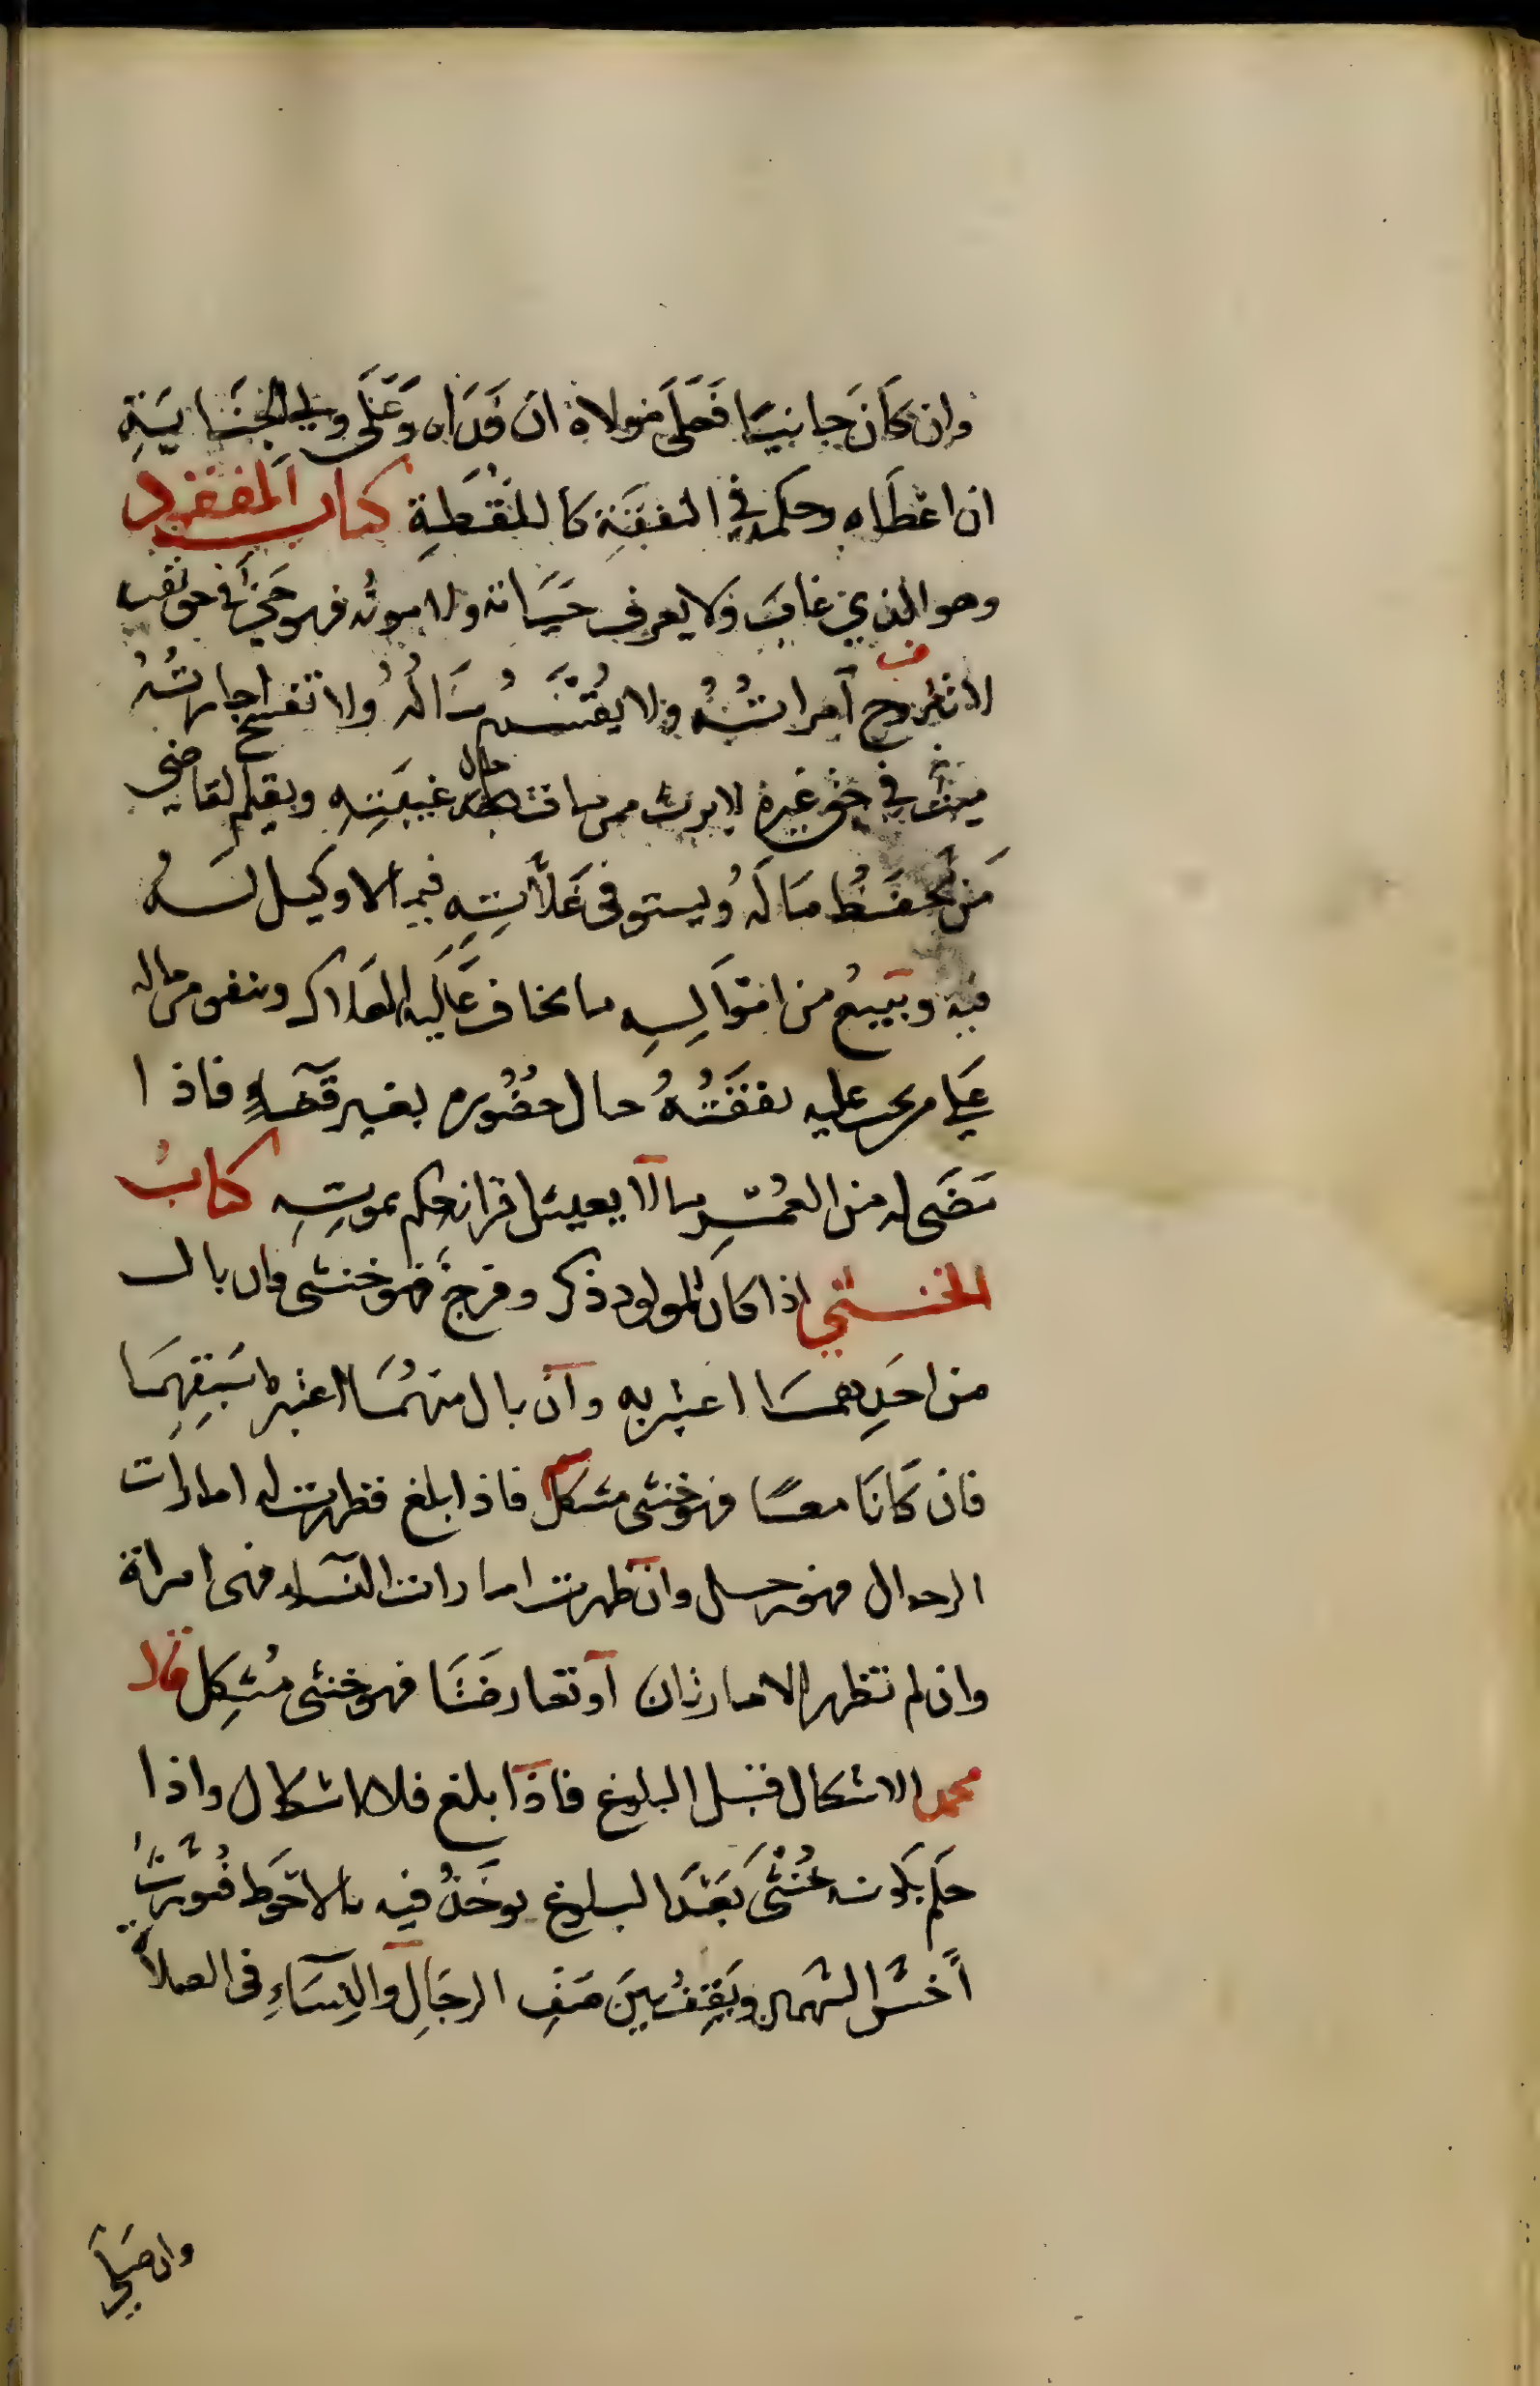 وان كان جانيا فعلى مولاه ان فداه وعلى ولي الجناية
ان اعطاه وحكمه في النفقة كاللقطة كتاب المفقود
وهو الذي غاب ولا يعرف حياته ولا موته فهو حي في حق نفسه
لا تزوج امراته ولا يقسم ماله ولا تفسخ اجارته
ميت في حق غيره لا يرث ممن مات حال غيبته ويقيم القاضي
من يحفظ ماله ويستوفى غلاته فيما لا وكيل له
فيه ويبيع من امواله ما يخاف عليه الهلاك وينفق من ماله
على من يجب عليه نفقته حال حضوره بغير قضاء فاذا
مضى له من العمر ما لا يعيش اقرانه حكم بموته كتاب
الخنثي اذا كان للمولود ذكر وفرج فهو خنثى فان بال
من احدهما اعتبر به وان بال منهما اعتبر باسبقهما
فان كانا معا فهو خنثى مشكل فاذا بلغ فظهرت له امارات
الرجال فهو رجل وان ظهرت امارات النساء فهى امراة
وان لم تظهر الامارتان او تعارضتا فهو خنثى مشكل قال
محمد الاشكال قبل البلوغ فاذا بلغ فلا اشكال واذا
حكم بكونه خنثى بعد البلوغ يوخذ فيه بالاحوط فيورث
اخس السهمين ويقف بين صف الرجال والنساء فى الصلاة
وان صلى